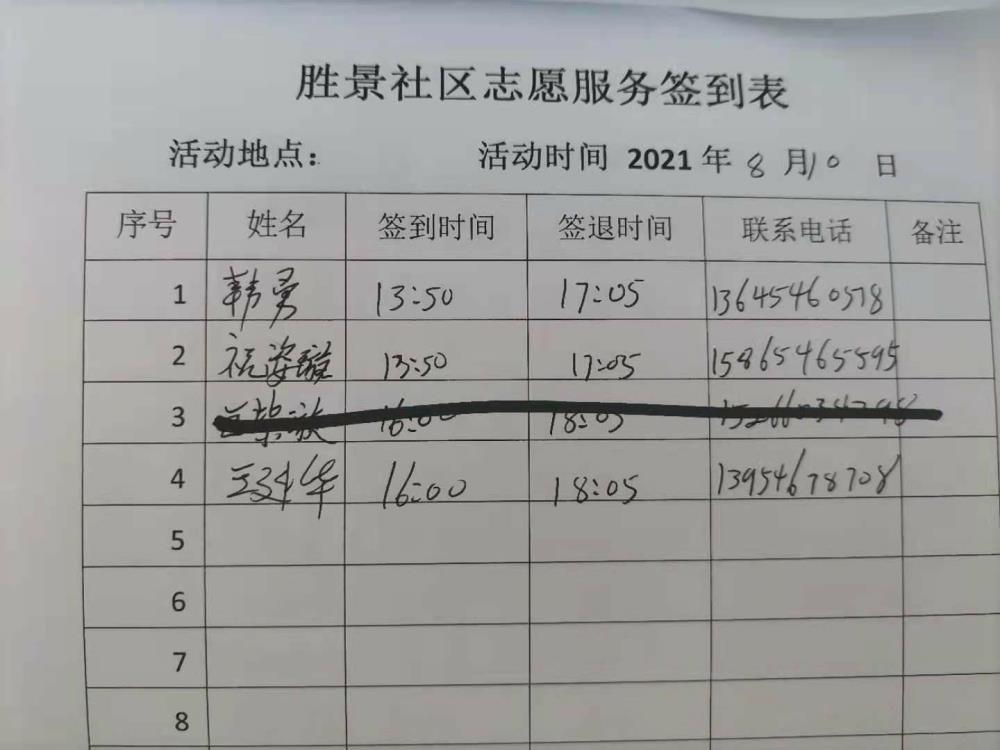 胜景社区志愿服务签到表
活动地点： 活动时间 2021 年 8 月 10 日
序号 姓名 签到时间 签退时间 联系电话 备注
1 韩勇 13:50 17:05 13645460578
2 祝姿璇 13:50 17:05 15865465595
3 16:00 18:05
4 王 华 16:00 18:05 13954678708
5
6
7
8